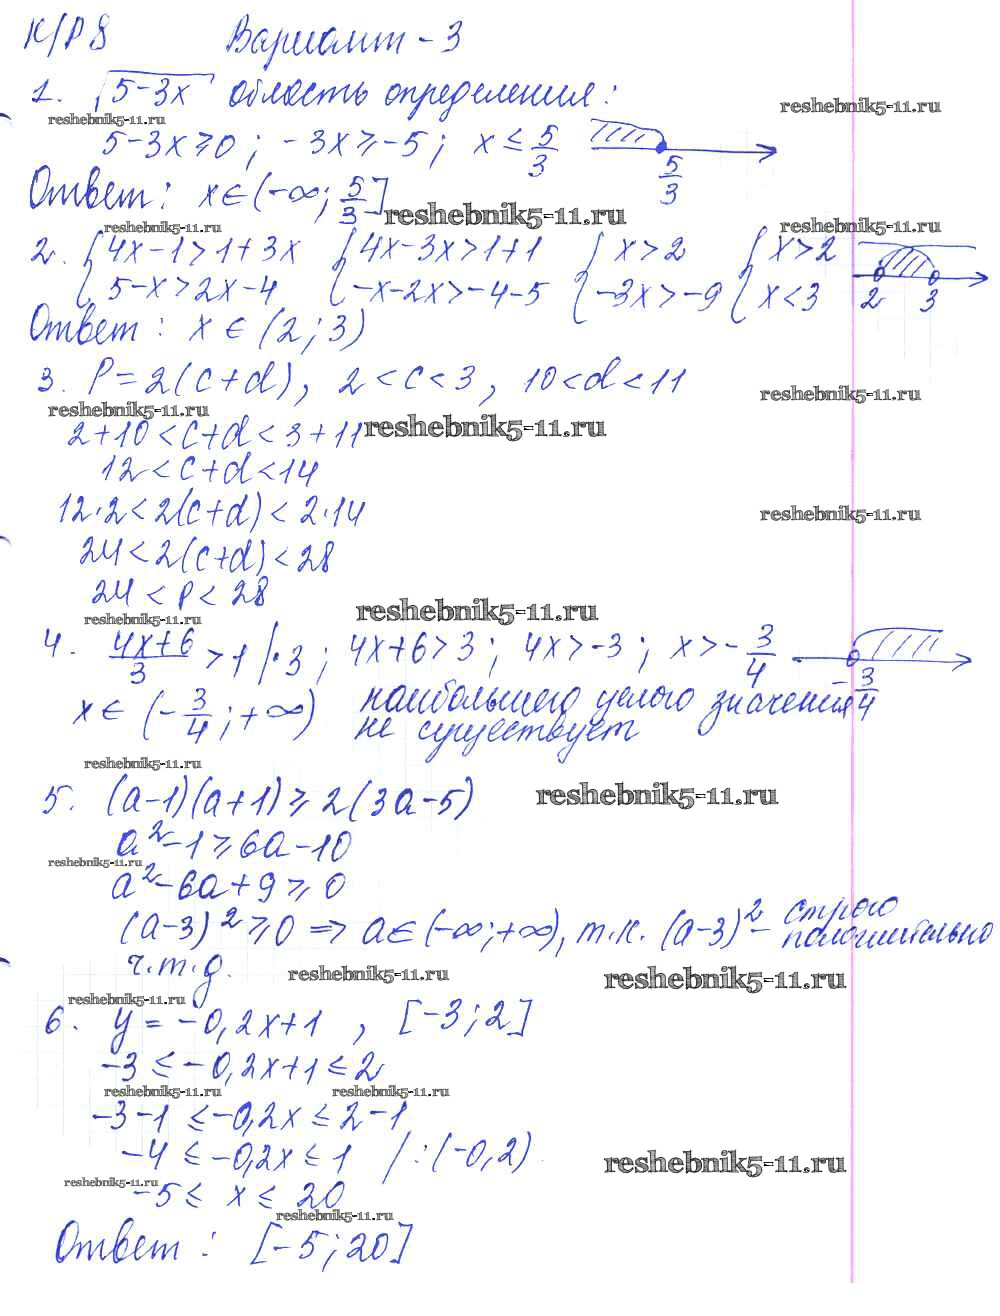 К/Р 8 Вариант - 3
1. √5-3x область определения: reshebnik5-11.ru
reshebnik5-11.ru
5-3x≥0; -3x≥-5; x≤5/3 5/3
Ответ: x∈(-∞; 5/3] reshebnik5-11.ru
reshebnik5-11.ru reshebnik5-11.ru
2. { 4x-1>1+3x { 4x-3x>1+1 { x>2 { x>2
5-x>2x-4 -x-2x>-4-5 -3x>-9 x<3 2 3
Ответ: x∈(2;3)
3. P=2(c+d), 2<c<3, 10<d<11 reshebnik5-11.ru
reshebnik5-11.ru
2+10<c+d<3+11 reshebnik5-11.ru
12<c+d<14
12·2<2(c+d)<2·14 reshebnik5-11.ru
24<2(c+d)<28
24<P<28 reshebnik5-11.ru
reshebnik5-11.ru
4. 4x+6/3 >1 |·3; 4x+6>3; 4x>-3; x>-3/4 -3/4
x∈(-3/4;+∞) наибольшего целого значения
не существует
reshebnik5-11.ru
5. (a-1)(a+1)≥2(3a-5) reshebnik5-11.ru
a²-1≥6a-10
reshebnik5-11.ru
a²-6a+9≥0
(a-3)²≥0 ⇒ a∈(-∞;+∞), т.к. (a-3)² - строго
положительно
ч.т.д. reshebnik5-11.ru reshebnik5-11.ru
reshebnik5-11.ru
6. y=-0,2x+1 , [-3;2]
-3≤-0,2x+1≤2
reshebnik5-11.ru reshebnik5-11.ru
-3-1≤-0,2x≤2-1
-4≤-0,2x≤1 /:(-0,2) reshebnik5-11.ru
reshebnik5-11.ru
-5≤x≤20
reshebnik5-11.ru
Ответ: [-5;20]